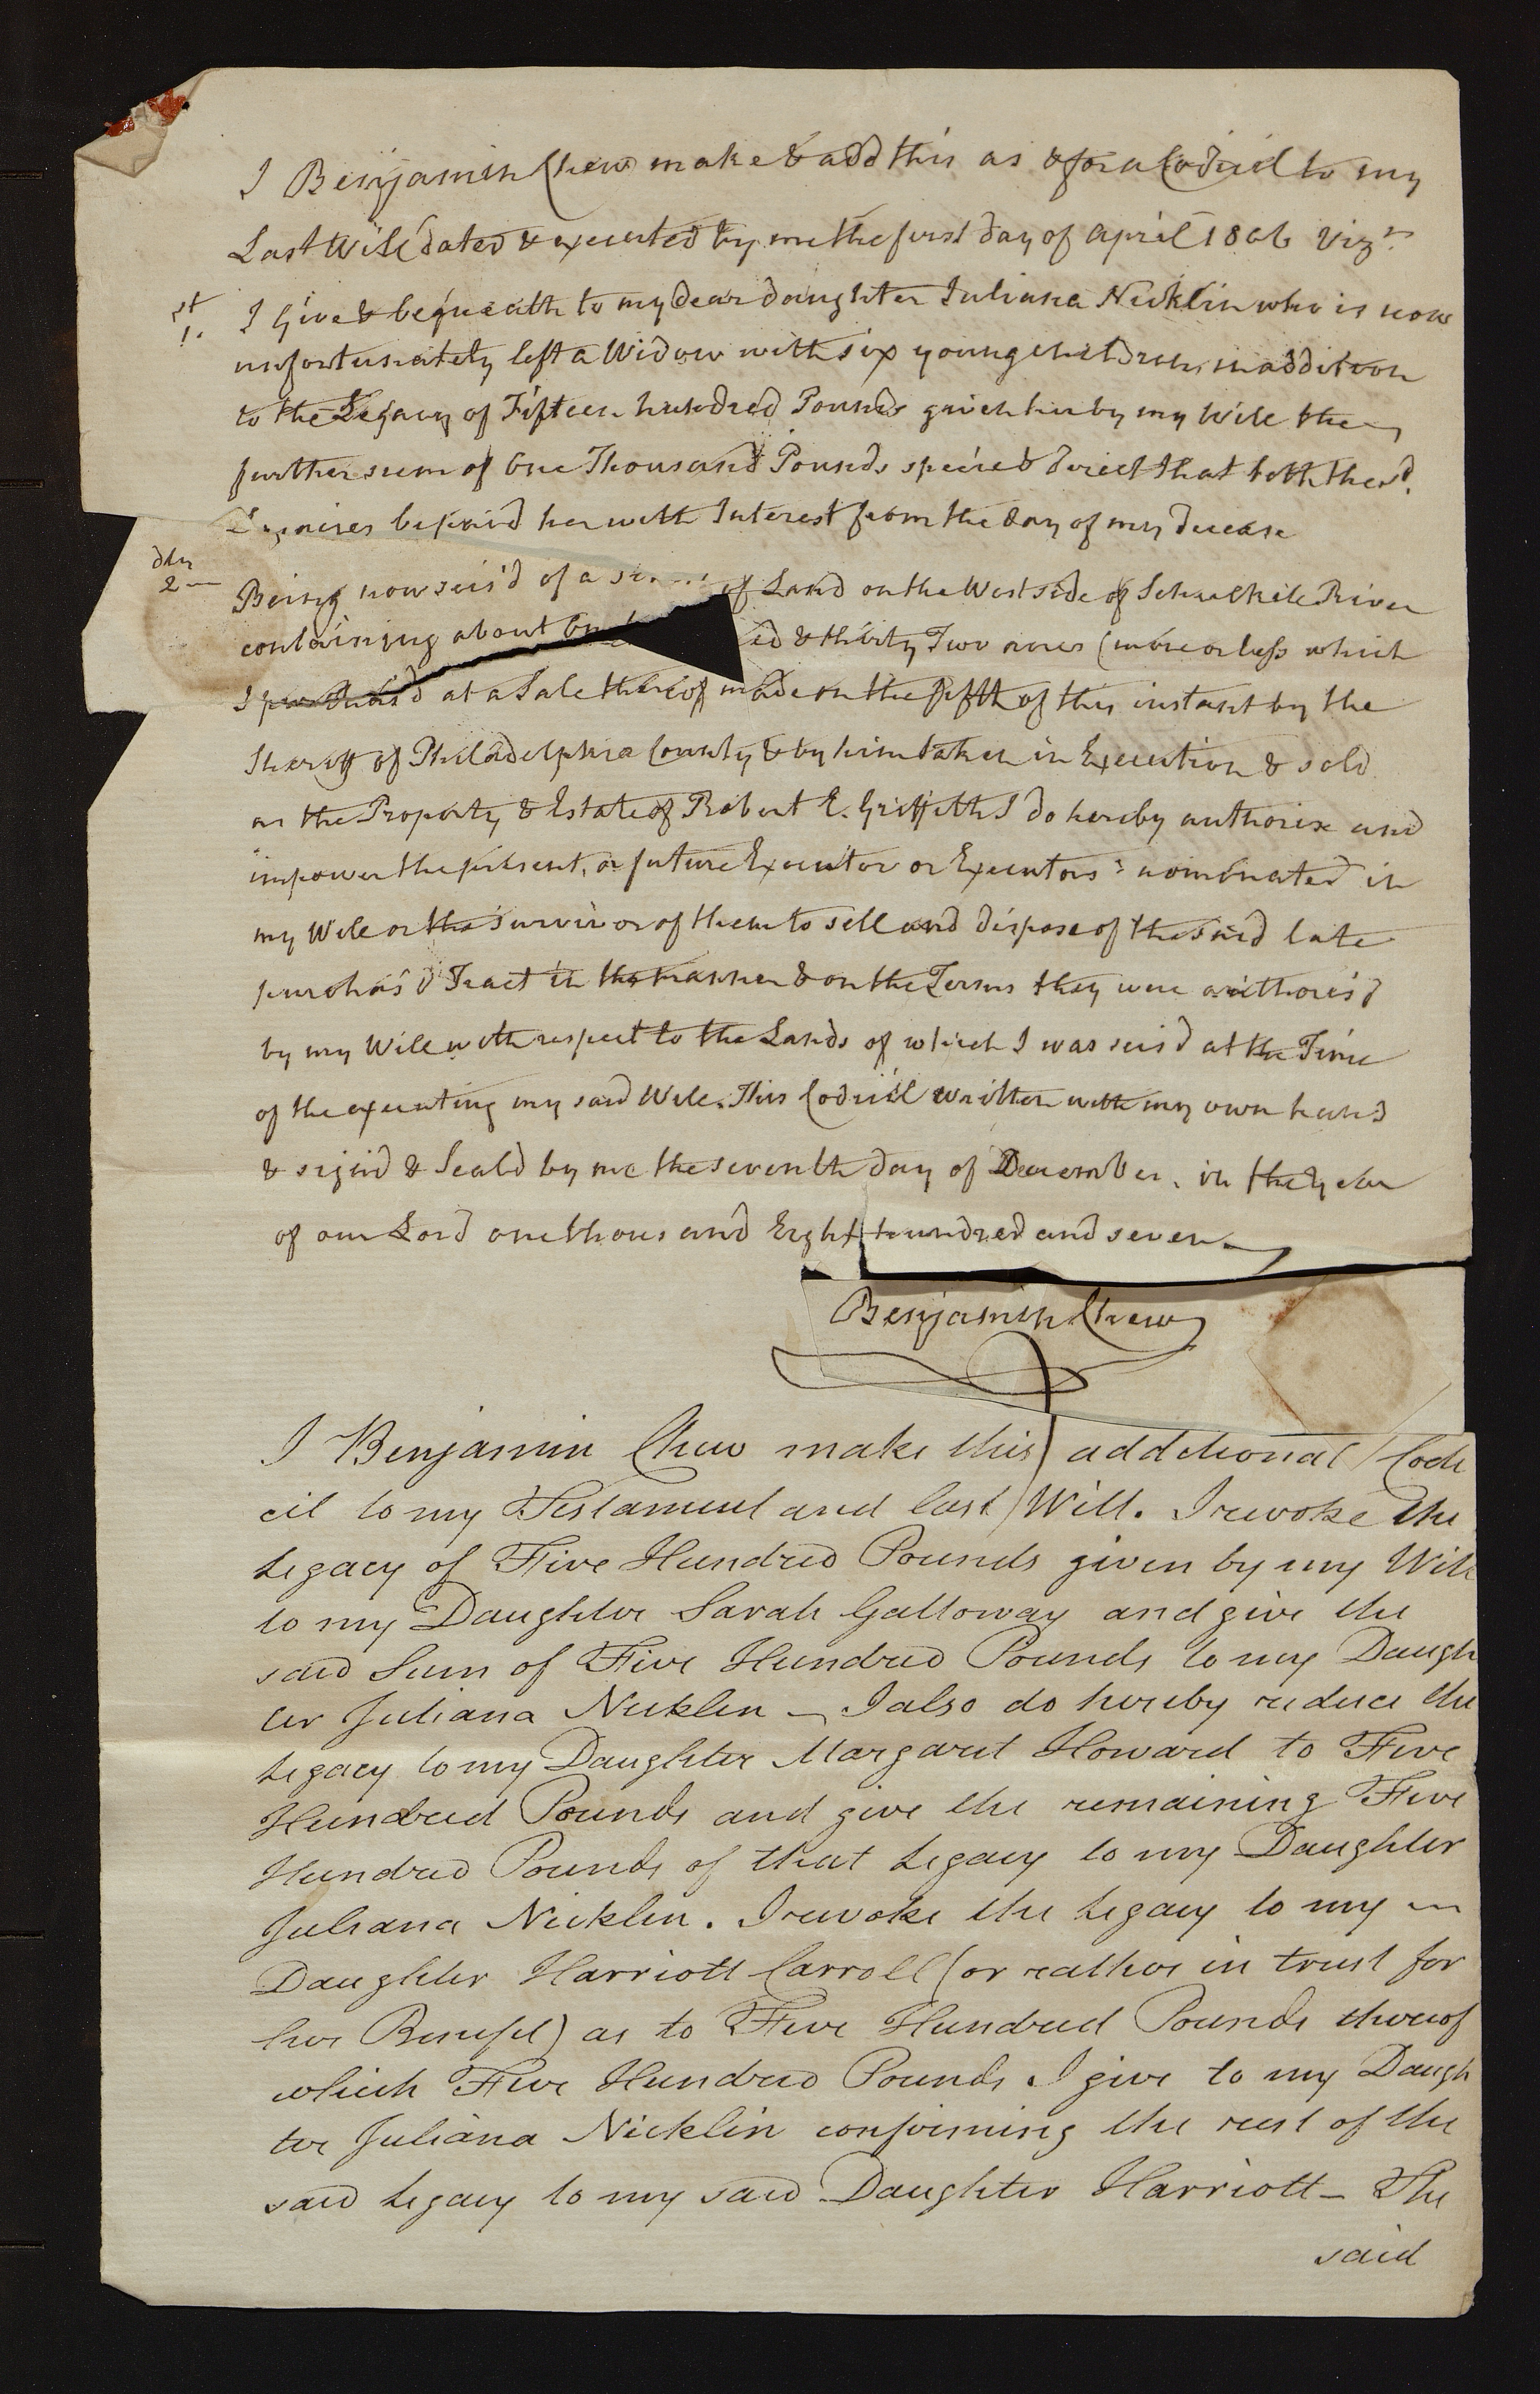 I Benjamin Chew make & add this as & for a Codicil to my
Last Will dated & executed by me the first day of April 1806 Vizt.
1st. I Give & bequeath to my dear daughter Juliana Nicklin who is now
unfortunately left a Widow with six young children, in addition
to the Legacy of Fifteen hundred Pounds given her by my Will the
further sum of One Thousand Pounds specie & direct that both the sd.
Legacies be paid her with Interest from the day of my decease
2dly Being now seis'd of a of Land on the West side of Schuylkill River
containing about & thirty Two acres (more or less which
I purchas'd at a Sale thereof made on the fifth of this instant by the
Sheriff of Philadelphia County & by him taken in Execution & sold
as the Property & Estate of Robert E. Griffith I do hereby authorise and
impower the present, or future Executor or Executors nominated in
my Will or the survivor of them to sell and dispose of the said late
purchas'd Tract in the manner & on the Terms they were authoris'd
by my Will with respect to the Lands of which I was seis'd at the Time
of the executing my said Will. This Codicil written with my own hand
& sign'd & Seal'd by me the seventh day of December, in the year
of our Lord one thousand Eight hundred and seven
Benjamin Chew
I Benjamin Chew make this additional Codi
cil to my Testament and last Will. I revoke the
Legacy of Five Hundred Pounds given by my Will
to my Daughter Sarah Galloway and give the
said Sum of Five Hundred Pounds to my Daugh
ter Juliana Nicklin – I also do hereby reduce the
Legacy to my Daughter Margaret Howard to Five
Hundred Pounds and give the remaining Five
Hundred Pounds of that Legacy to my Daughter
Juliana Nicklin. I revoke the Legacy to my
Daughter Harriott Carroll (or rather in trust for
her Benefit) as to Five Hundred Pounds thereof
which Five Hundred Pounds I give to my Daugh
ter Juliana Nicklin confirming the rest of the
said Legacy to my said Daughter Harriott – The
said